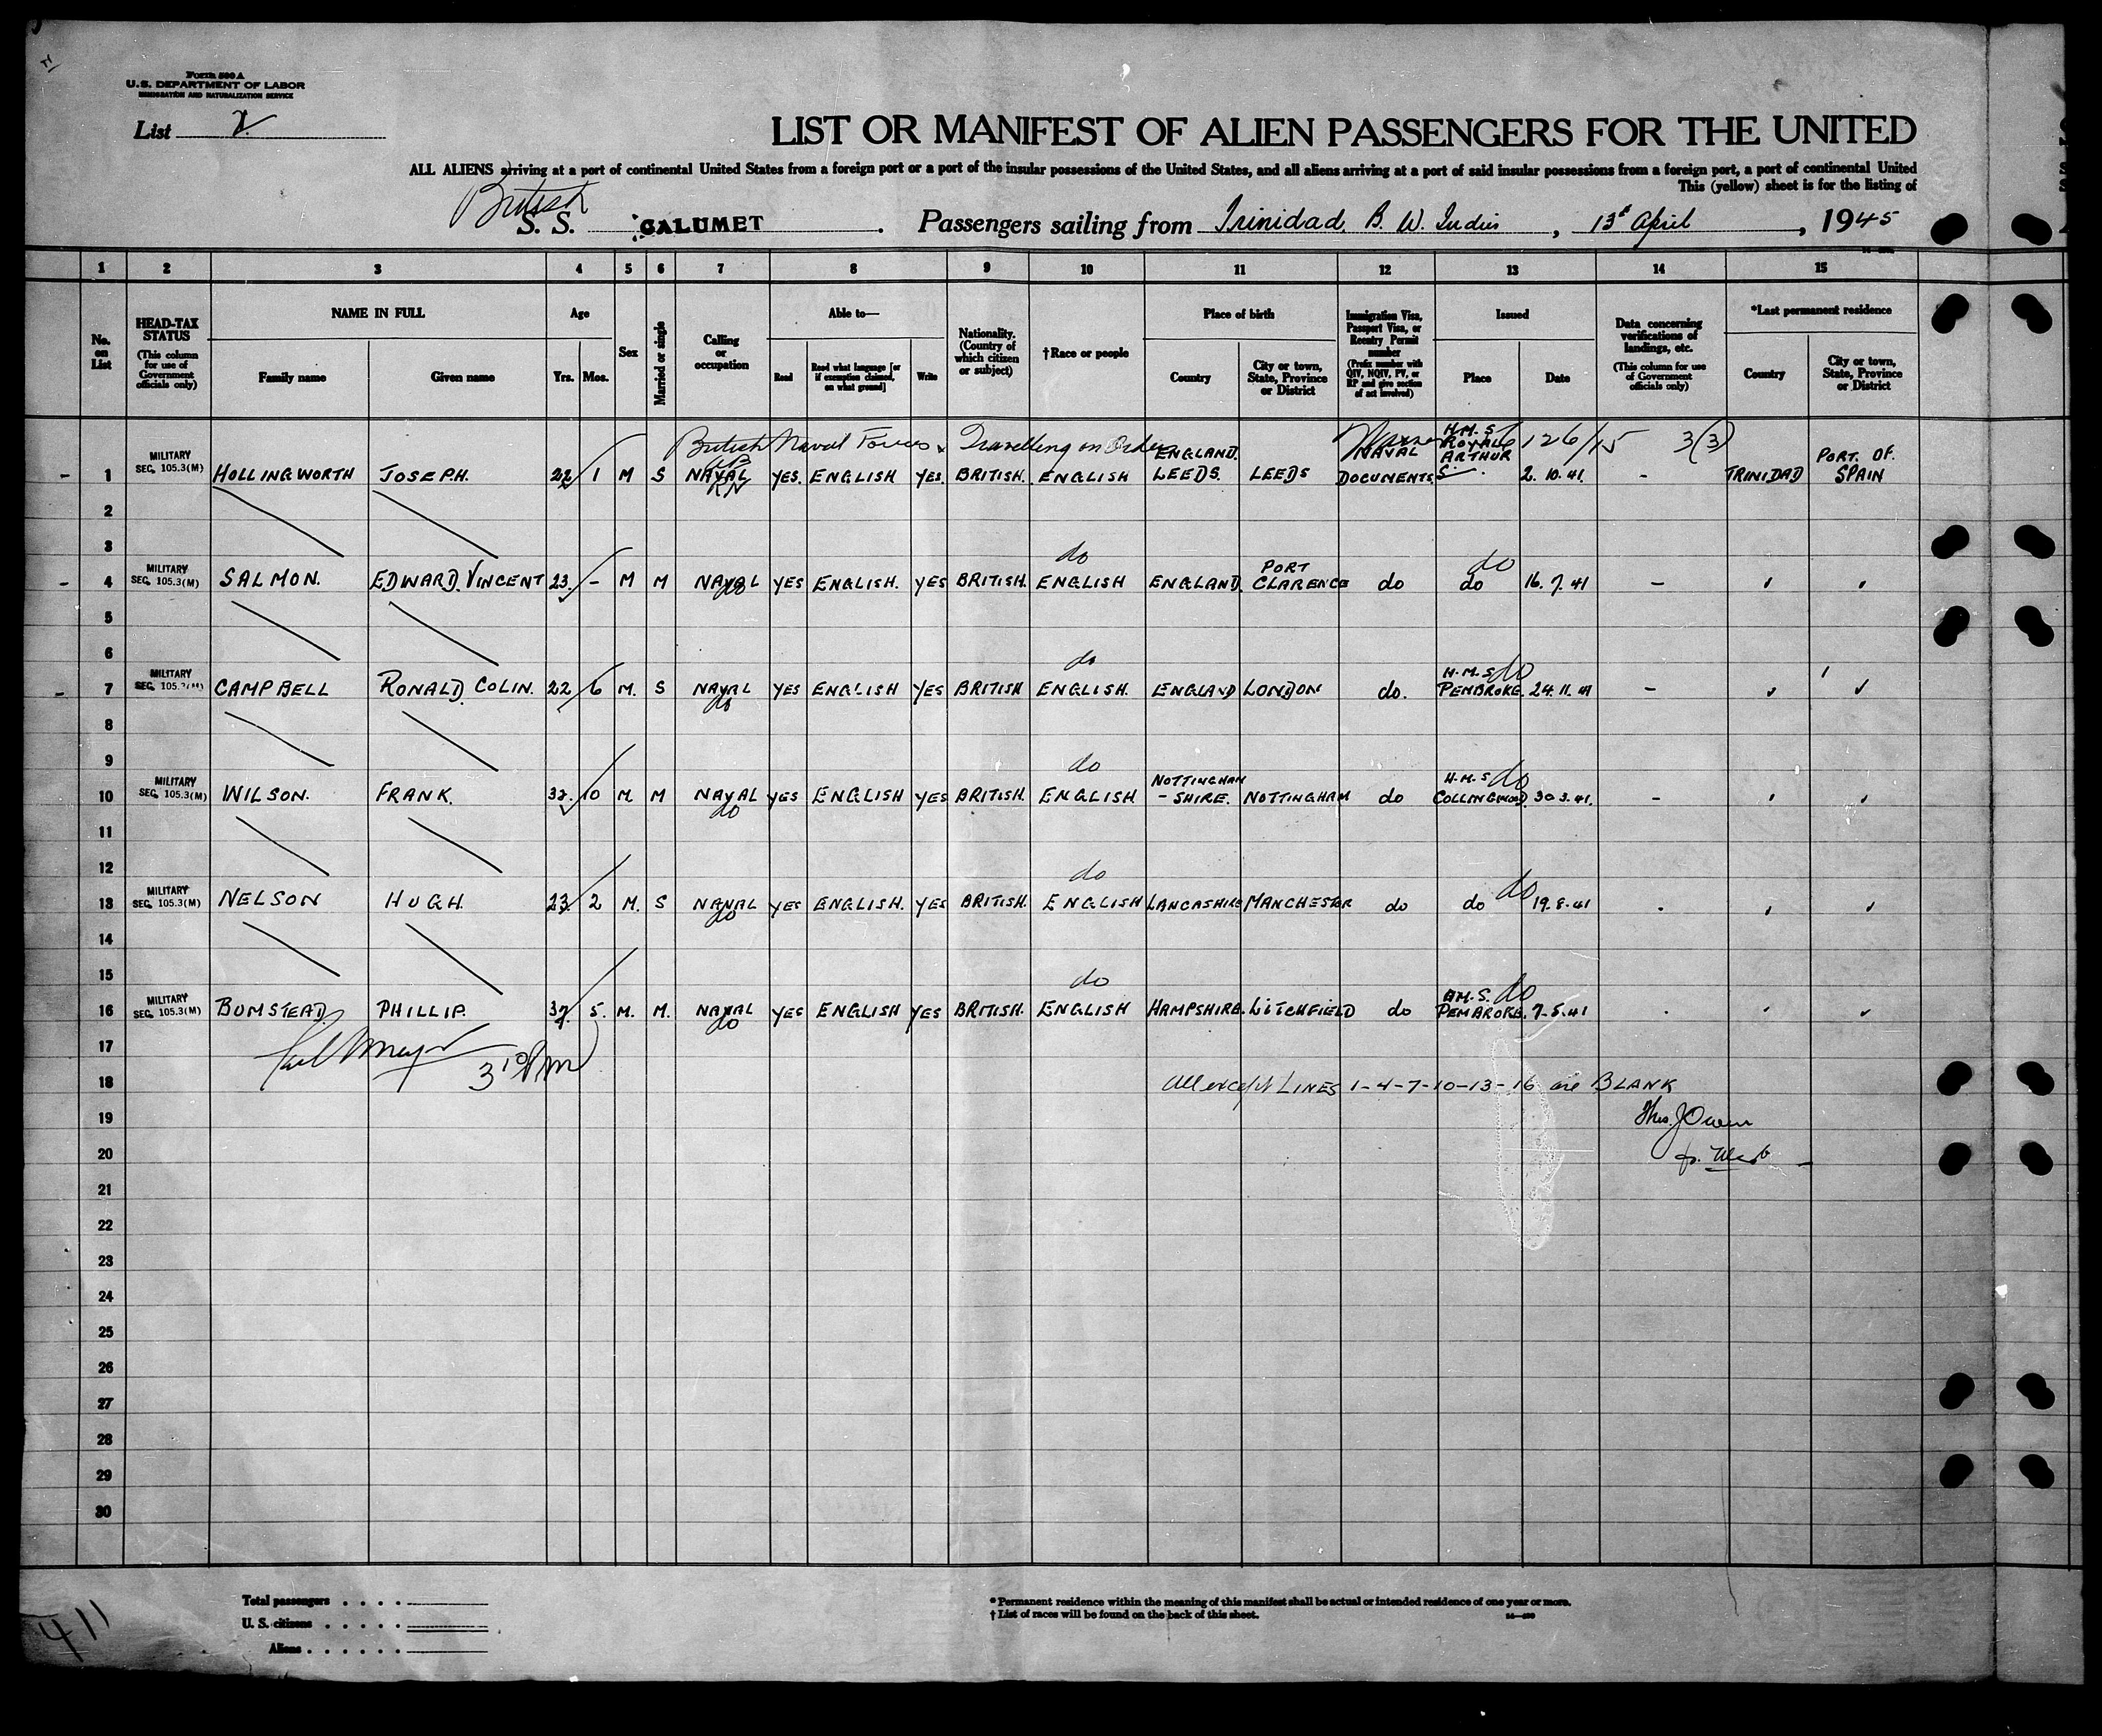 Form 500 A
U.S. DEPARTMENT OF LABOR
IMMIGRATION AND NATURALIZATION SERVICE
List 2
LIST OR MANIFEST OF ALIEN PASSENGERS FOR THE UNITED
ALL ALIENS arriving at a port of continental United States from a foreign port or a port of the insular possessions of the United States, and all aliens arriving at a port of said insular possessions from a foreign port, a port of continental United
This (yellow) sheet is for the listing of
British
S. S. CALUMET. Passengers sailing from Trinidad, B. W. Indies, 13th April, 1945
1 2 3 4 5 6 7 8 9 10 11 12 13 14 15
No. on List
HEAD-TAX STATUS (This column for use of Government officials only)
NAME IN FULL Family name Given name
Age Yrs. Mos.
Sex
Married or single
Calling or occupation
Able to— Read Read what language [or if exemption claimed, on what ground] Write
Nationality. (Country of which citizen or subject)
†Race or people
Place of birth Country City or town, State, Province or District
Immigration Visa, Passport Visa, or Reentry Permit number (Prefix number with QIV, NQIV, PV, or RP and give section of act involved)
Issued Place Date
Data concerning verifications of landings, etc. (This column for use of Government officials only)
*Last permanent residence Country City or town, State, Province or District
British Naval Forces Travelling on Order 126/15 3(3)
1 MILITARY SEC. 105.3(M) HOLLINGWORTH JOSEPH. 22 1 M S NAVAL RN YES. ENGLISH YES. BRITISH. ENGLISH ENGLAND. LEEDS. LEEDS NAVAL DOCUMENTS H.M.S ROYAL ARTHUR 2.10.41. - TRINIDAD PORT OF SPAIN
2
3
do
4 MILITARY SEC. 105.3(M) SALMON. EDWARD. VINCENT 23. - M M NAVAL do YES ENGLISH. YES BRITISH. ENGLISH ENGLAND. PORT CLARENCE do do do 16.7.41 -
5
6
do
7 MILITARY SEC. 105.3(M) CAMPBELL RONALD. COLIN. 22 6 M. S NAVAL do YES ENGLISH YES BRITISH ENGLISH. ENGLAND LONDON do. H.M.S do PEMBROKE. 24.11.41 -
8
9
do
10 MILITARY SEC. 105.3(M) WILSON. FRANK. 32. 10 M M NAVAL do YES ENGLISH YES BRITISH. ENGLISH NOTTINGHAM -SHIRE. NOTTINGHAM do H.M.S do COLLINGWOOD. 30 3.41. -
11
12
do
13 MILITARY SEC. 105.3(M) NELSON HUGH. 23. 2 M. S NAVAL do YES ENGLISH. YES BRITISH. ENGLISH LANCASHIRE MANCHESTER do do do 19.8.41
14
15
do
16 MILITARY SEC. 105.3(M) BUMSTEAD. PHILLIP. 37. 5. M. M. NAVAL do YES ENGLISH YES BRITISH. ENGLISH HAMPSHIRE. LITCHFIELD do H.M.S. do PEMBROKE. 7.5.41
17
3 10 PM
18 All except LINES 1-4-7-10-13-16 are BLANK
19 Thos. J Owen
20
21
22
23
24
25
26
27
28
29
30
Total passengers . . . .
U. S. citizens . . . . .
Aliens . . . . . .
* Permanent residence within the meaning of this manifest shall be actual or intended residence of one year or more.
† List of races will be found on the back of this sheet.
411